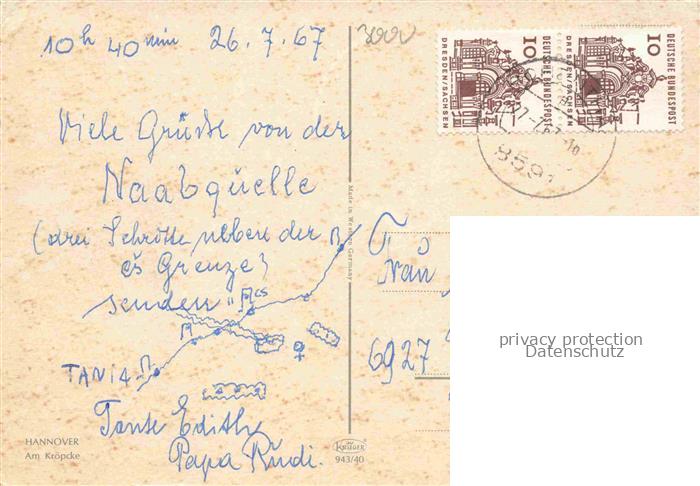 10h 40min 26.7.67
3000
Viele Grüsse von der
Naabquelle
(drei Schritte neben der
čs Grenze)
senden
TANIA
Tante Edith
Papa Rudi.
HANNOVER
Am Kröpcke
Made in Western Germany
KRÜGER
943/40
10
DEUTSCHE BUNDESPOST
DRESDEN/SACHSEN
10
DEUTSCHE BUNDESPOST
DRESDEN/SACHSEN
8591
6927
privacy protection
Datenschutz